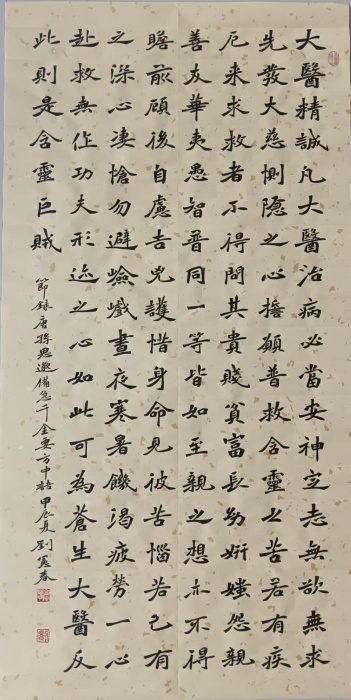 大醫精誠凡大醫治病必當安神定志無欲無求
先發大慈惻隱之心誓願普救含靈之苦若有疾
厄来求救者不得問其貴賤貧富長幼妍媸怨親
善友華夷愚智普同一等皆如至親之想亦不得
瞻前顧後自慮吉凶護惜身命見彼苦惱若己有
之深心凄愴勿避嶮巇晝夜寒暑饑渴疲勞一心
赴救無作功夫形迹之心如此可為蒼生大醫反
此則是含靈巨賊
節録唐孫思邈備急千金要方中語甲辰夏劉憲春